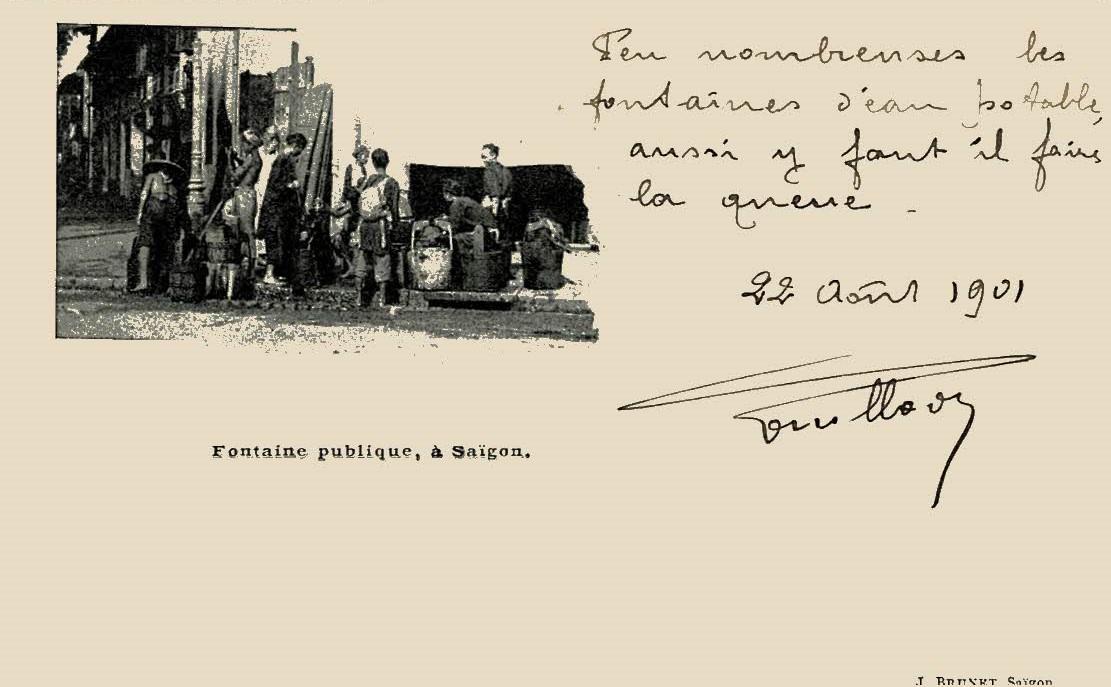 Peu nombreuses les
fontaines d'eau potable,
aussi y faut il faire
la queue -
22 Août 1901
Fontaine publique, à Saïgon.
J. BRUNET Saïgon